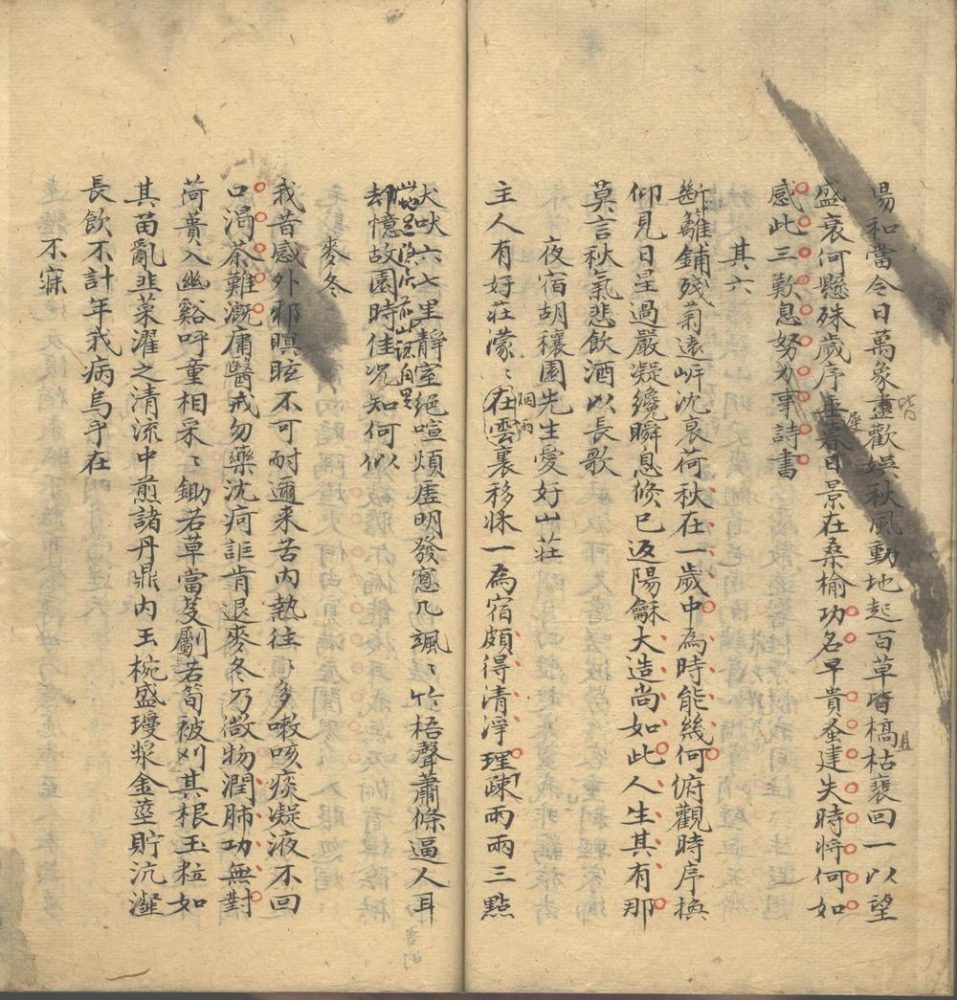 陽和當令日萬象盡歡娛秋風動地起百草皆槁枯褰回一以望
盛衰何懸殊歲序垂春日景在桑榆功名早貴蚤達失時將何如
感此三歎息努力事詩書
其六
斷籬鋪殘菊遠岍沈衰荷秋在一歲中為時能幾何俯觀時序換
仰見日星過嚴凝纔瞬息倏已返陽龢大造尚如此人生其有那
莫言秋氣悲飲酒以長歌
夜宿胡穰園先生愛好山莊
主人有好莊濛〻在雲裏移牀一為宿頗得清淨理疎雨兩三點
烟雨
犬吠六七里靜室絕喧煩虛明發窓几颯〻竹梧聲蕭條逼人耳
却憶故園時佳况知何似
麥冬
我昔感外邪瞑眩不可耐邇来苦内熱往〻多嗽咳痰凝液不回
口渴茶難溉庸醫戒勿藥沈疴詎肯退麥冬乃微物潤肺功無對
荷蕢入幽谿呼童相采〻鋤若草當芟劚若筍被刈其根玉粒如
其苗亂韭菜濯之清流中煎諸丹鼎内玉椀盛瓊漿金莖貯沆瀣
長飲不計年我病烏乎在
不寐